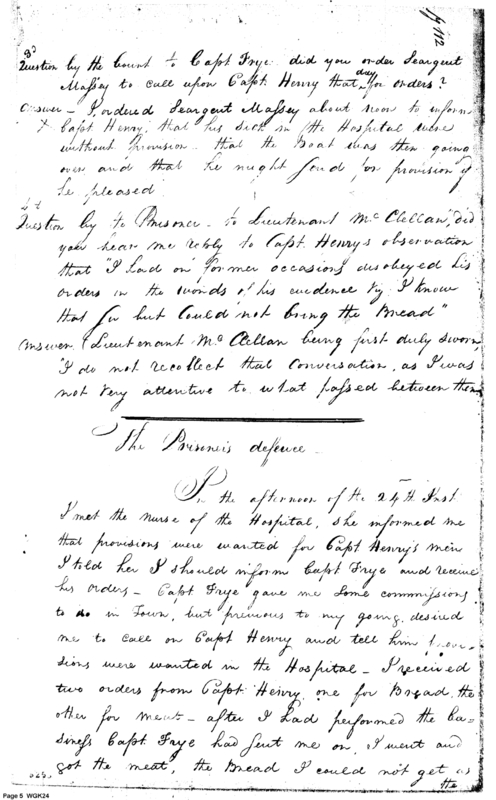 pg 112
3d
Question by the Court to Capt Frye did you order Seargent
Massey to call upon Capt. Henry that day for orders?
Answer – I ordered Seargent Massey about noon to inform
Capt Henry, that his sick in the Hospital were
without provision – that the Boat was then going
over, and that he might send for provision if
he pleased
4t
Question by to Prisoner – to Lieutenant Mc Clellan, did
you hear me reply to Capt. Henry's observation
that "I had on former occasions disobeyed his
orders in the words of his evidence Viz I know
that Sir but Could not bring the Bread"
Answer (Lieutenant Mc Clellan being first duly sworn,
"I do not recollect that Conversation, as I was
not very attentive to what passed between them
The Prisoners deffence –
In the afternoon of the 24th Inst
I met the nurse of the Hospital, she informed me
that provisions were wanted for Capt Henry's men
I told her I should inform Capt Frye and receive
his orders – Capt Frye gave me some commissions
to do in Town, but previous to my going, desired
me to call on Capt Henry and tell him provi=
sions were wanted in the Hospital – I received
two orders from Capt Henry, one for Bread, the
other for meat – after I had performed the bu=
siness Capt. Frye had sent me on, I went and
got the meat, the Bread I could not get as
the
Page 5 WGK24